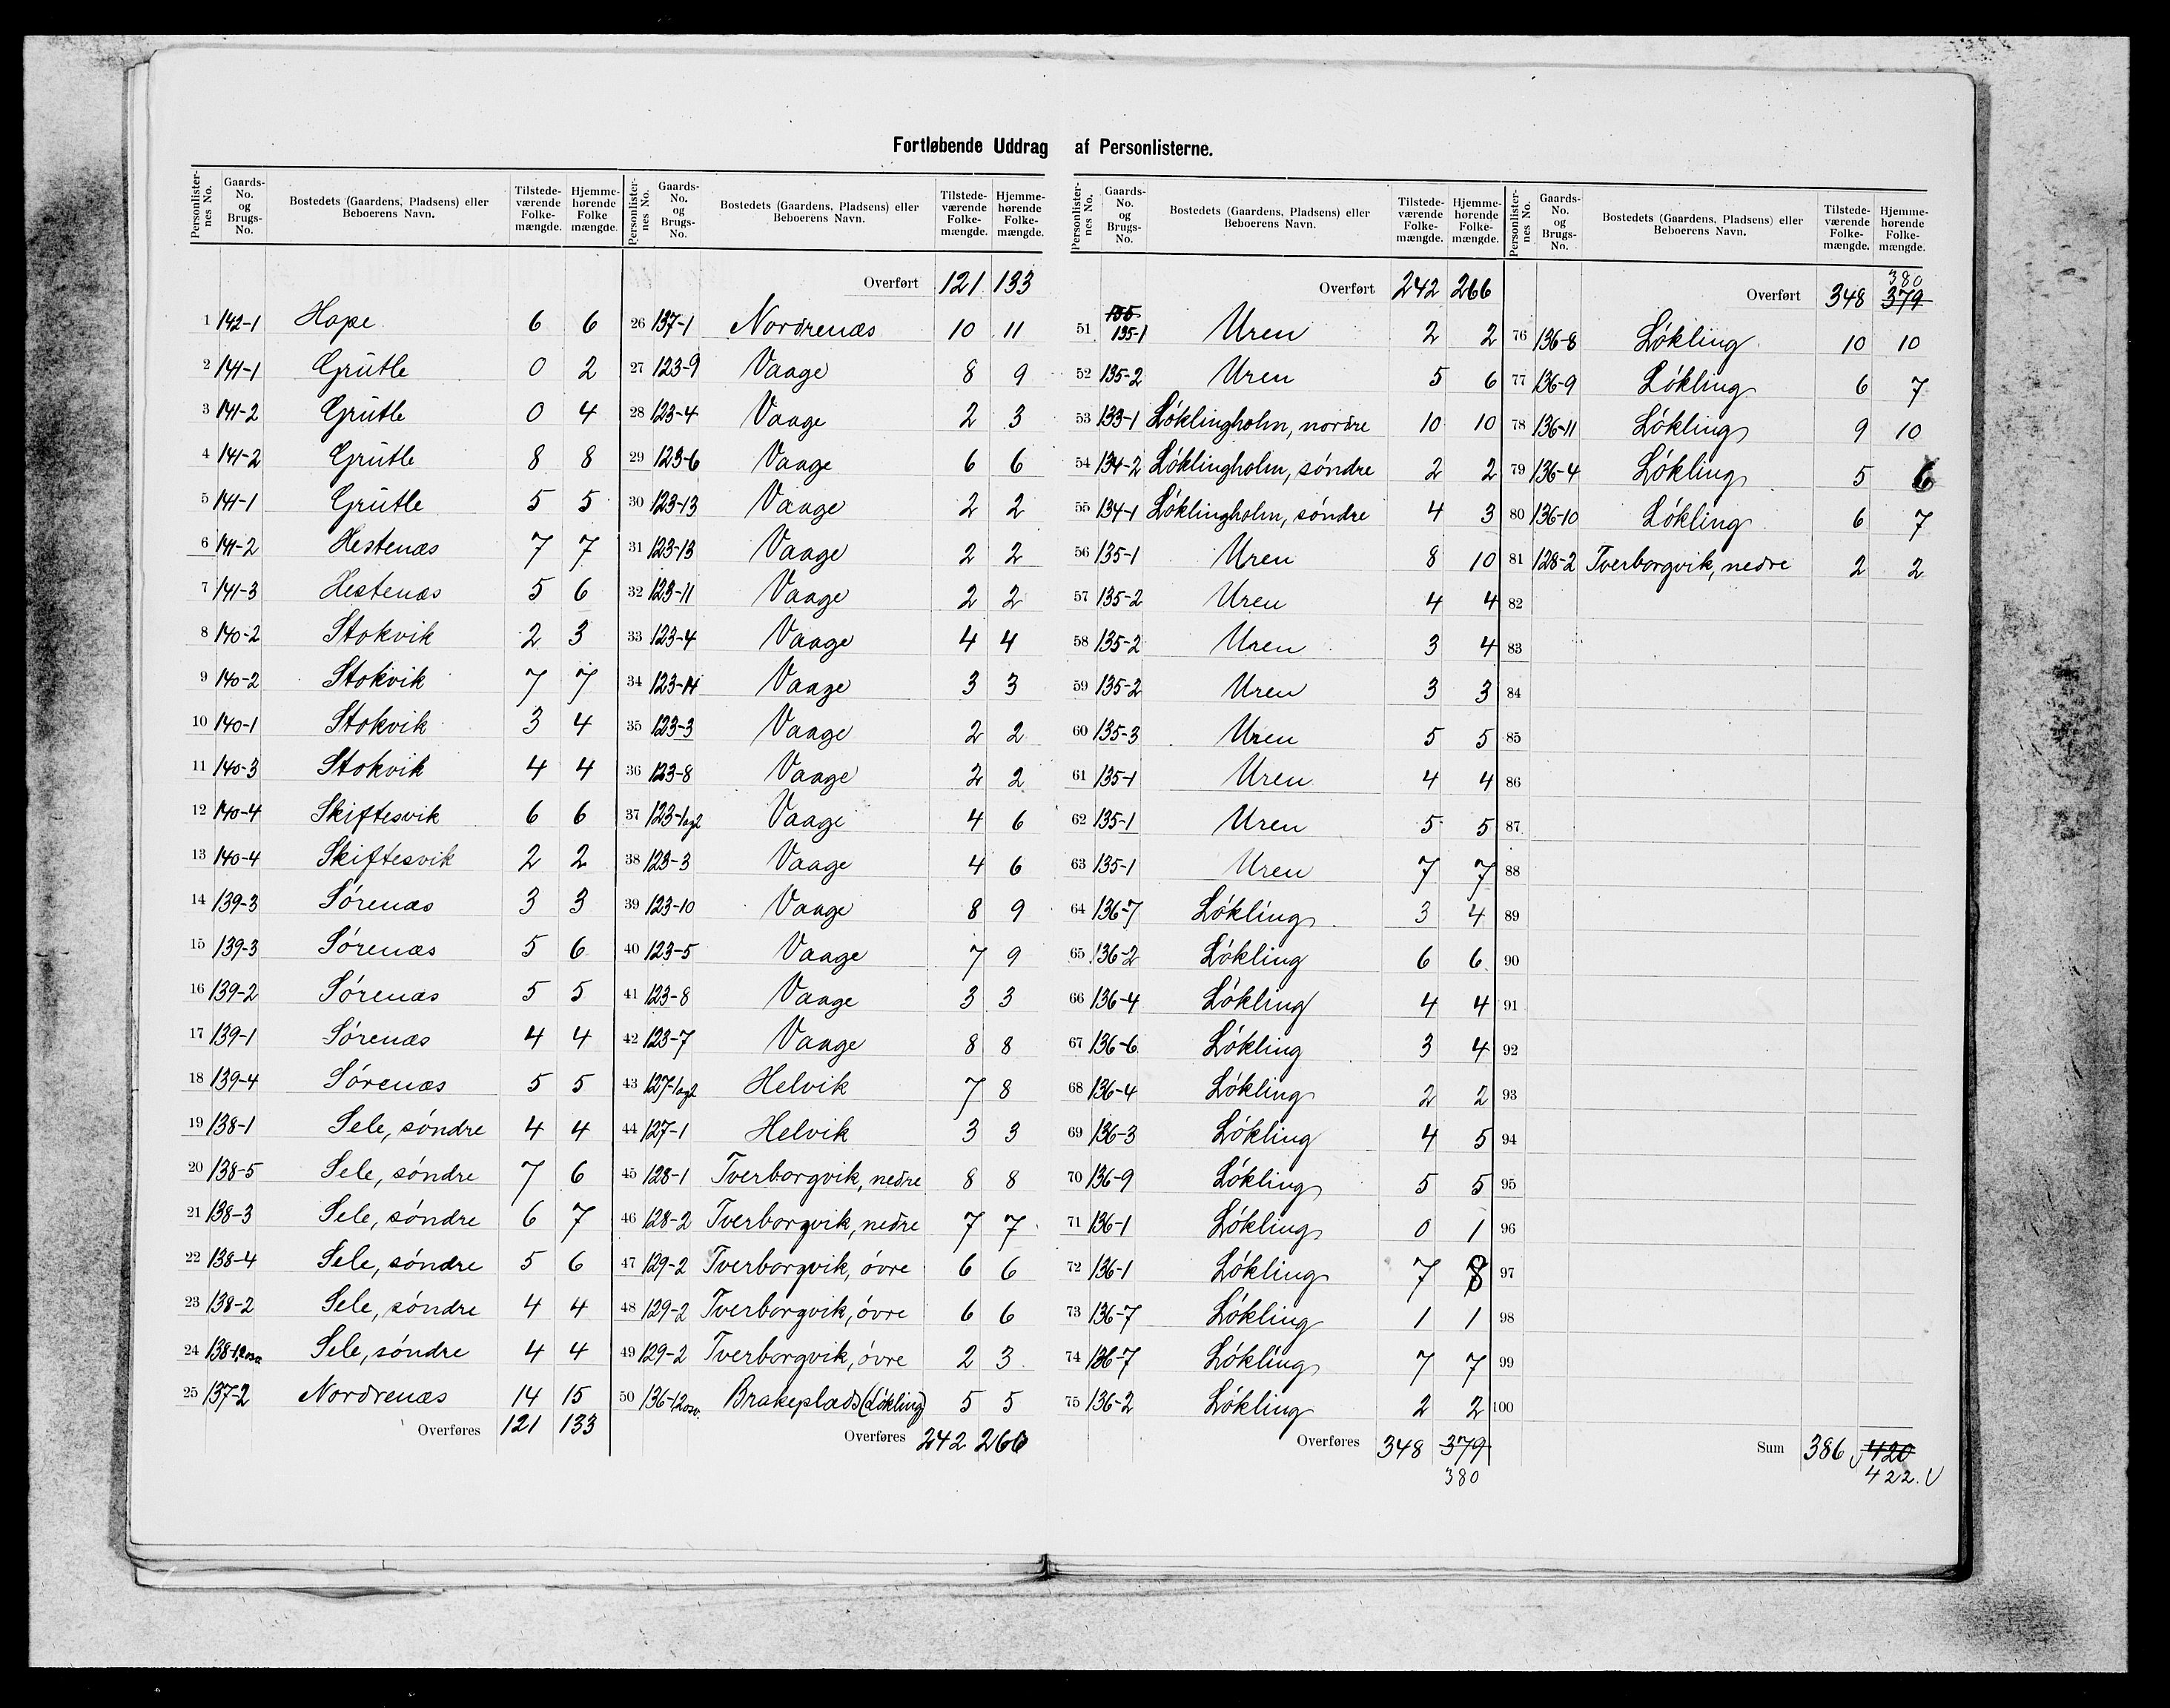 Fortløbende Uddrag af Personlisterne.
Personlister-nes No. Gaards-No. og Brugs-No. Bostedets (Gaardens, Pladsens) eller Beboerens Navn. Tilstede-værende Folke-mængde. Hjemme-hørende Folke mængde.
1 142-1 Hope 6 6
2 141-1 Grütle 0 2
3 141-2 Grütle 0 4
4 141-2 Grütle 8 8
5 141-1 Grütle 5 5
6 141-2 Hestenæs 7 7
7 141-3 Hestenæs 5 6
8 140-2 Stokvik 2 3
9 140-2 Stokvik 7 7
10 140-1 Stokvik 3 4
11 140-3 Stokvik 4 4
12 140-4 Skiftesvik 6 6
13 140-4 Skiftesvik 2 2
14 139-3 Sórenæs 3 3
15 139-3 Sórenæs 5 6
16 139-2 Sórenæs 5 5
17 139-1 Sórenæs 4 4
18 139-4 Sórenæs 5 5
19 138-1 Sele, sóndre 4 4
20 138-5 Sele, sóndre 7 6
21 138-3 Sele, sóndre 6 7
22 138-4 Sele, sóndre 5 6
23 138-2 Sele, sóndre 4 4
24 138-1,2osv Sele, sóndre 4 4
25 137-2 Nordrenæs 14 15
Overføres 121 133
Personlister-nes No. Gaards-No. og Brugs-No. Bostedets (Gaardens, Pladsens) eller Beboerens Navn. Tilstede-værende Folke-mængde. Hjemme-hørende Folke-mængde.
Overført 121 133
26 137-1 Nordrenæs 10 11
27 123-9 Vaage 8 9
28 123-4 Vaage 2 3
29 123-6 Vaage 6 6
30 123-13 Vaage 2 2
31 123-13 Vaage 2 2
32 123-11 Vaage 2 2
33 123-4 Vaage 4 4
34 123-14 Vaage 3 3
35 123-3 Vaage 2 2
36 123-8 Vaage 2 2
37 123-1og2 Vaage 4 6
38 123-3 Vaage 4 6
39 123-10 Vaage 8 9
40 123-5 Vaage 7 9
41 123-8 Vaage 3 3
42 123-7 Vaage 8 8
43 127-1og2 Helvik 7 8
44 127-1 Helvik 3 3
45 128-1 Tverborgvik, nedre 8 8
46 128-2 Tverborgvik, nedre 7 7
47 129-2 Tverborgvik, óvre 6 6
48 129-2 Tverborgvik, óvre 6 6
49 129-2 Tverborgvik, óvre 2 3
50 136-12osv. Brakeplads (Lókling) 5 5
Overføres 242 266
Personlister-nes No. Gaards-No. og Brugs-No. Bostedets (Gaardens, Pladsens) eller Beboerens Navn. Tilstede-værende Folke-mængde. Hjemme-hørende Folke-mængde.
Overført 242 266
135
51 135-1 Uren 2 2
52 135-2 Uren 5 6
53 133-1 Lóklingholm, nordre 10 10
54 134-2 Lóklingholm, sóndre 2 2
55 134-1 Lóklingholm, sóndre 4 3
56 135-1 Uren 8 10
57 135-2 Uren 4 4
58 135-2 Uren 3 4
59 135-2 Uren 3 3
60 135-3 Uren 5 5
61 135-1 Uren 4 4
62 135-1 Uren 5 5
63 135-1 Uren 7 7
64 136-7 Lókling 3 4
65 136-2 Lókling 6 6
66 136-4 Lókling 4 4
67 136-6 Lókling 3 4
68 136-4 Lókling 2 2
69 136-3 Lókling 4 5
70 136-9 Lókling 5 5
71 136-1 Lókling 0 1
72 136-1 Lókling 7 8
73 136-7 Lókling 1 1
74 136-7 Lókling 7 7
75 136-2 Lókling 2 2
Overføres 348 379
380
Personlister-nes No. Gaards-No. og Brugs-No. Bostedets (Gaardens, Pladsens) eller Beboerens Navn. Tilstede-værende Folke-mængde. Hjemme-hørende Folke-mængde.
380
Overført 348 379
76 136-8 Lókling 10 10
77 136-9 Lókling 6 7
78 136-11 Lókling 9 10
79 136-4 Lókling 5 6
80 136-10 Lókling 6 7
81 128-2 Tverborgvik, nedre 2 2
82
83
84
85
86
87
88
89
90
91
92
93
94
95
96
97
98
99
100
Sum 386 420
422.